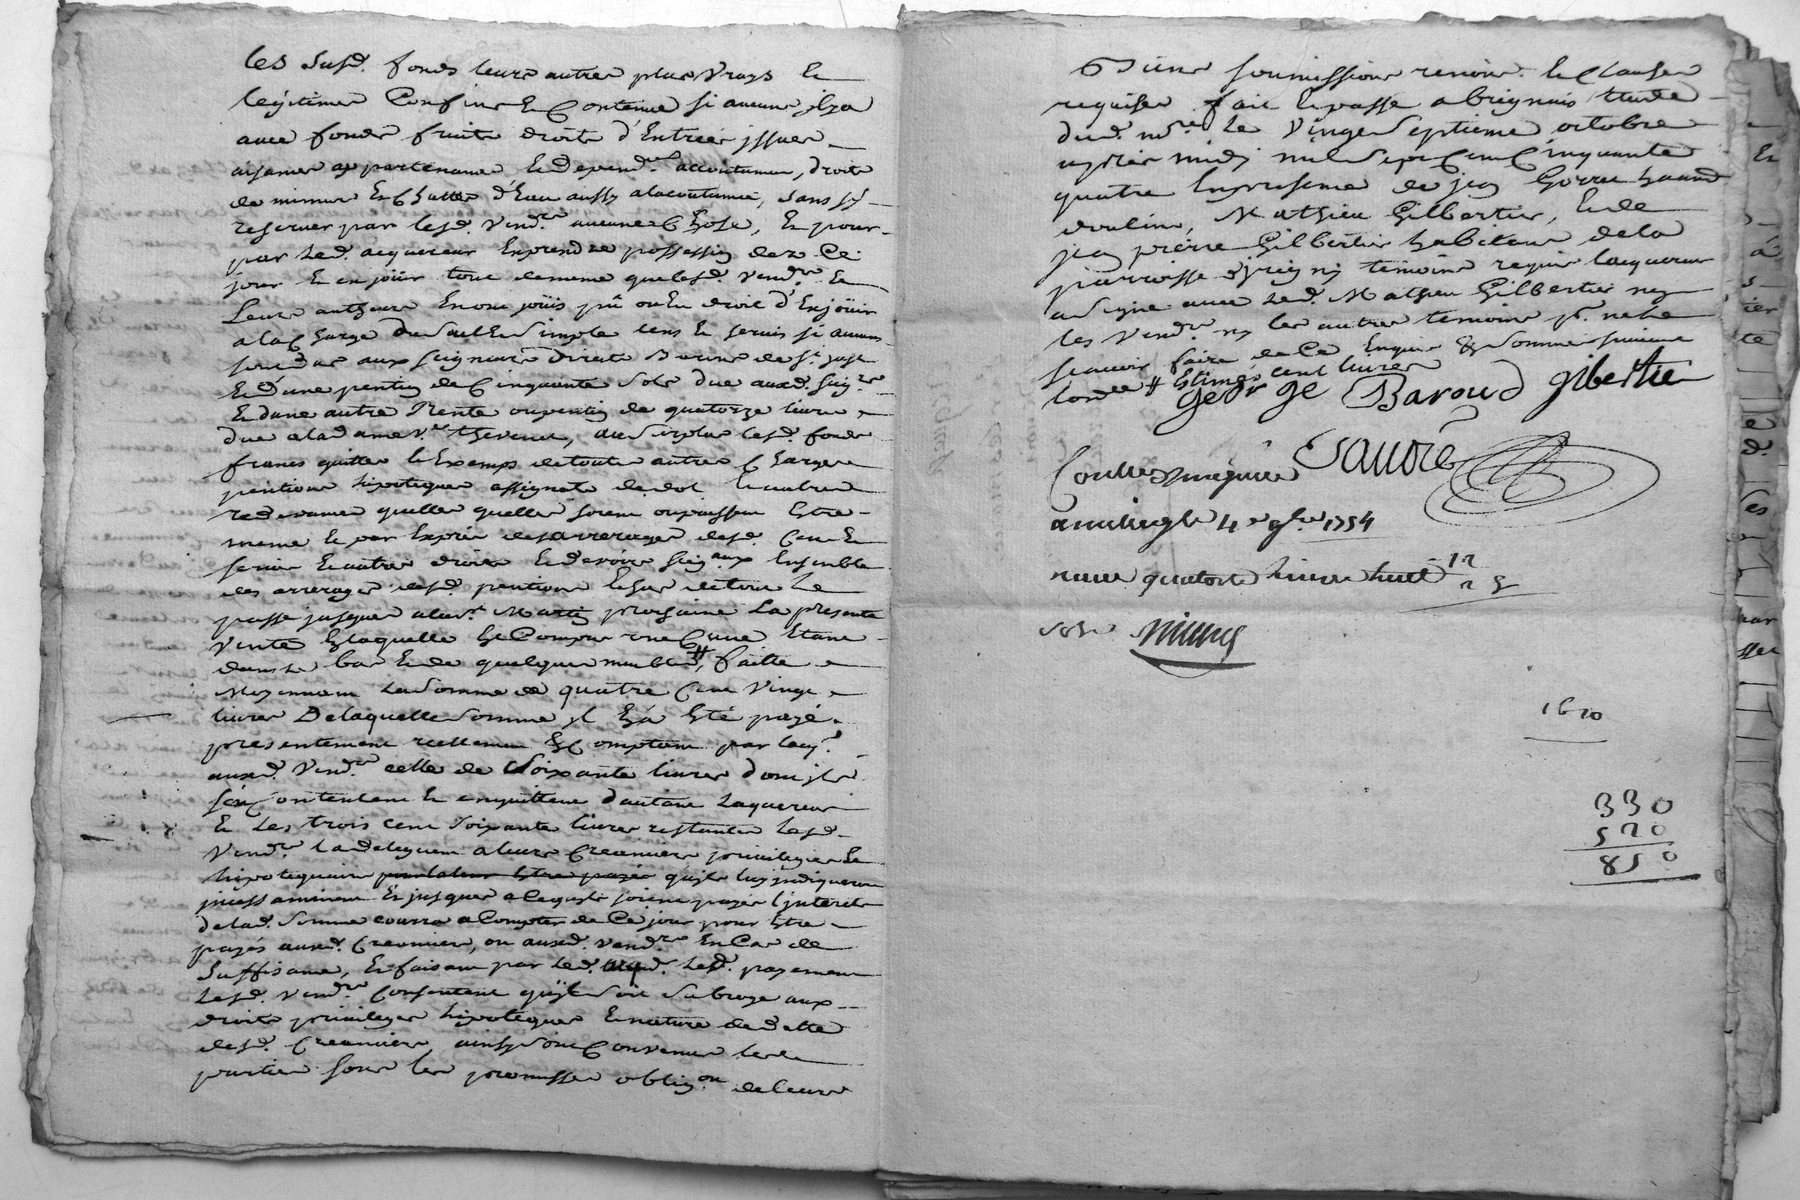 les susd. fonds leurs autres plus vrays Et
legitimes Confins Et Contenue si aucuns il y a
avec fonds fruits droits d'Entrées jssues
aisances appartenances Et depend.ces accoutumées, droits
de mener Et d'Eau aussy a la coutumée, sans s'y
reserver par lesd. Vend.rs aucune Chose, Et pour
par Led. acquereur En prendre possession dez Ce
jour Et en joüir tout de meme que lesd. Vend.rs Et
Leurs autheurs En ont joüis pû ou Eu droit d'En joüir
a la Charge du simple Cens Et servis si aucun
sont dus aux seigneurs Directs Barons de St. just
Et d'une pention de Cinquante Sols due auxd. seig.rs
Et d'une autre Rente ou pention de quatorze livres
due a la dame V.ve thevenet, au surplus lesd. fonds
francs quittes Et Exemps de toutes autres Charges
pentions hipoteques assignats de dot Et autres
redevances quelles quelles soient ou puissent Etre
meme Et par Exprés des arrerages desd. Cens Et
servis Et autres droits Et devoirs seig.aux Ensemble
des arrerages desd. pentions de tout Le
passé jusques a la St. Martin prochaine La presente
Vente En laquelle Est Comprise une Cuve Etant
dans le bas Et de quelques meubles #, faitte
Moyennant La somme de quatre Cent Vingt
livres De laquelle somme jl En a Eté payé
presentement reellement Et Comptant par lacq.r
auxd. Vend.rs celle de Soixante livres dont jls
se Contentent Et en quittent d'autant Lacquereur
Et Les trois Cent Soixante livres restantes Lesd.
Vend.rs La deleguent a leurs Creanciers privilegiés Et
hipotequaires pour leur Etre payée qu'jls luy jndiqueront
jncessamment Et jusques a Ce qu'jls soient payés l'jnterets
de lad. Somme courra a Compter de Ce jour pour Etre
payés auxd. Creanciers, ou auxd. Vend.rs En Cas de
Suffisance, En faisant par led. acq.r Lesd. payements
Lesd. Vend.rs Consentent qu'jl soit subrogé aux
droits privileges hipoteques Et nature de dette
desd. Creanciers ainsy sont Convenues Les
parties sous les promesses oblig.on de leurs
Biens soumissions renon. Et Clauses
requises fait Et passé a brignais Etude
dud. no.re Le Vingt Septieme octobre
aprés midi mil sept Cent Cinquante
quatre En presence de jean
Mathieu Gilbertier, Et de
jean pierre Gilbertier habitans de la
parroisse d'jrigny témoins requis lacquereur
a signé avec Led. Mathieu Gilbertier non
les Vend.rs ny les autres temoins p.r ne le
scavoir faire de Ce Enquis Et Sommés suivant
lord.ce # Estimés cent livres
george Baroud gibertie
Saunoé
4 e 9bre 1754
quatorze livres huit
1620
330
520
850